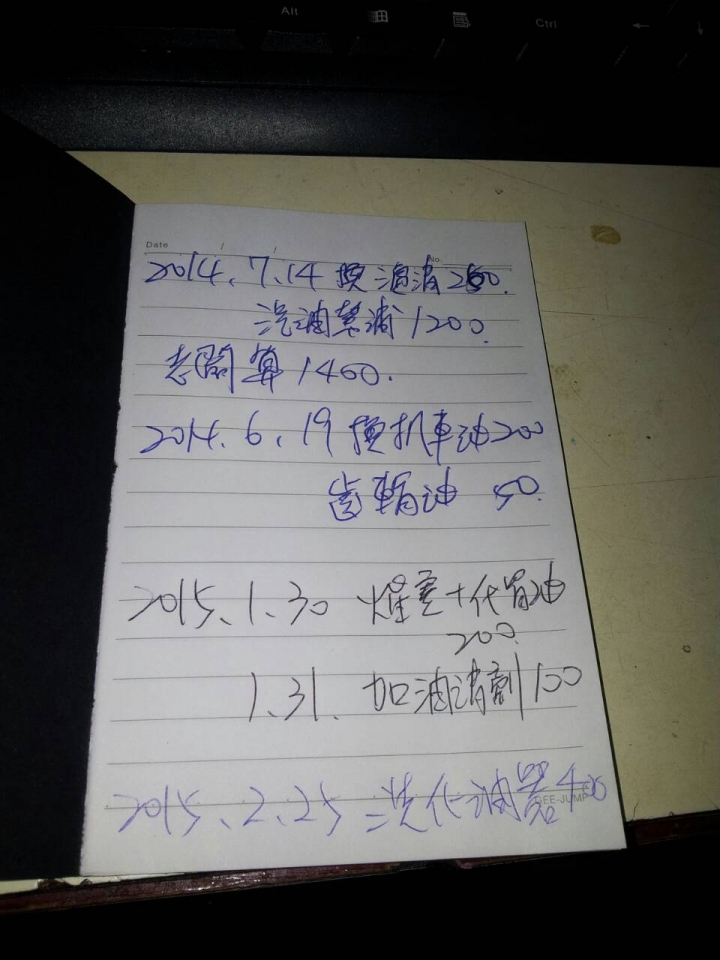 Alt
Ctrl
Date / /
No.
2014.7.14 換 油清 250.
汽油幫浦 1200.
老闆算 1400.
2014.6.19 換机車油 200
齒輪油 50.
2015.1.30 十代 油
200.
1.31. 加油清劑 100
2015.2.25 洗化油器 400
GEE-JUMP